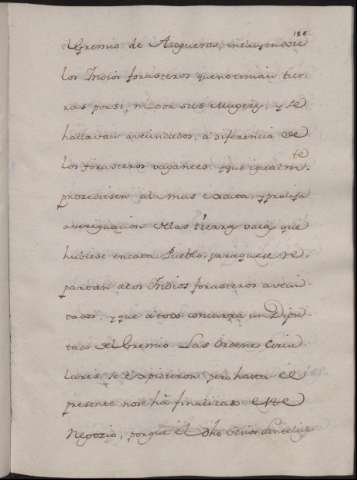 el Gremio de Azogueros, incluyendose
los Indios forasteros que no tenian tier
ras por si, ni por sus Mugeres, y se
hallavan avecindados, a diferencia de
los forasteros vagantes, y que igualm.te
procediesen al mas exacta, y prolija
averiguacion de las tierras vacas que
hubiese en cada Pueblo, para que se re
partan a los Indios forasteros avecin
dados, y que a todo concurra un Dipu
tado del Gremio. Las ordenes Circu
lares, se expidieron, pero hasta el
presente no se há finalizado este
Negocio, porque el dho Señor